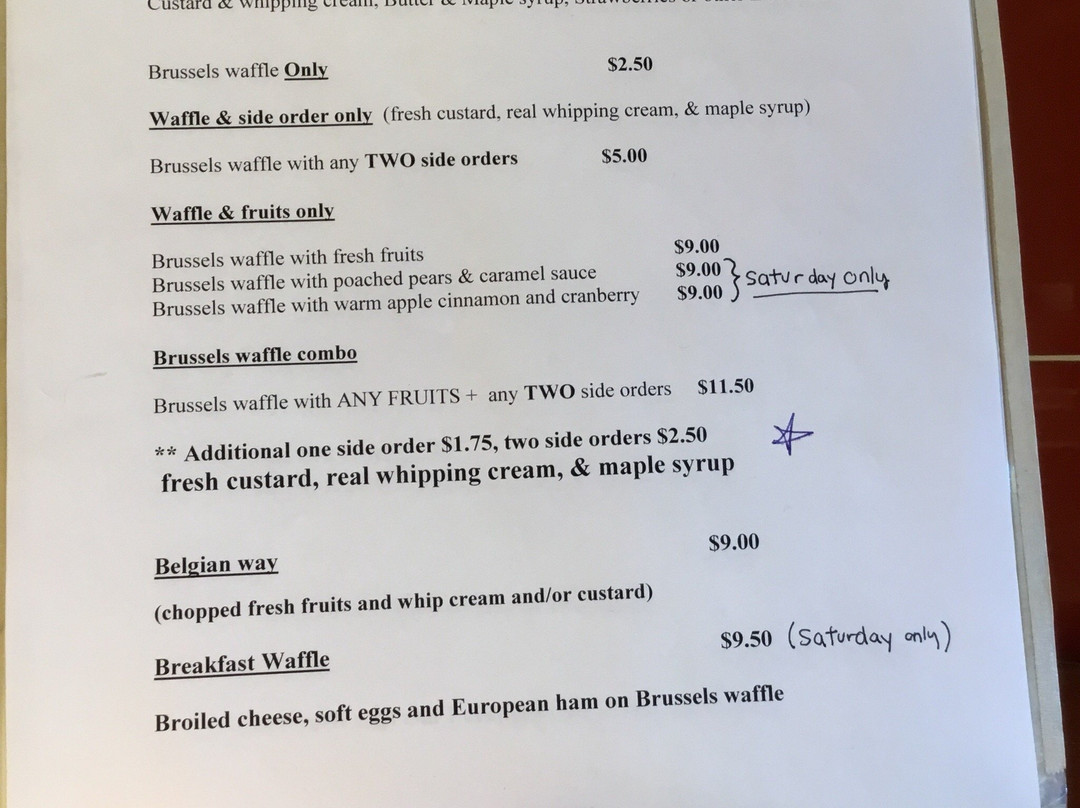 Custard & Whipping cream, Butter & Maple syrup, Strawberries
Brussels waffle Only $2.50
Waffle & side order only (fresh custard, real whipping cream, & maple syrup)
Brussels waffle with any TWO side orders $5.00
Waffle & fruits only
Brussels waffle with fresh fruits $9.00
Brussels waffle with poached pears & caramel sauce $9.00
Brussels waffle with warm apple cinnamon and cranberry $9.00
} Saturday only
Brussels waffle combo
Brussels waffle with ANY FRUITS + any TWO side orders $11.50
** Additional one side order $1.75, two side orders $2.50
fresh custard, real whipping cream, & maple syrup
Belgian way $9.00
(chopped fresh fruits and whip cream and/or custard)
Breakfast Waffle $9.50 (Saturday only)
Broiled cheese, soft eggs and European ham on Brussels waffle